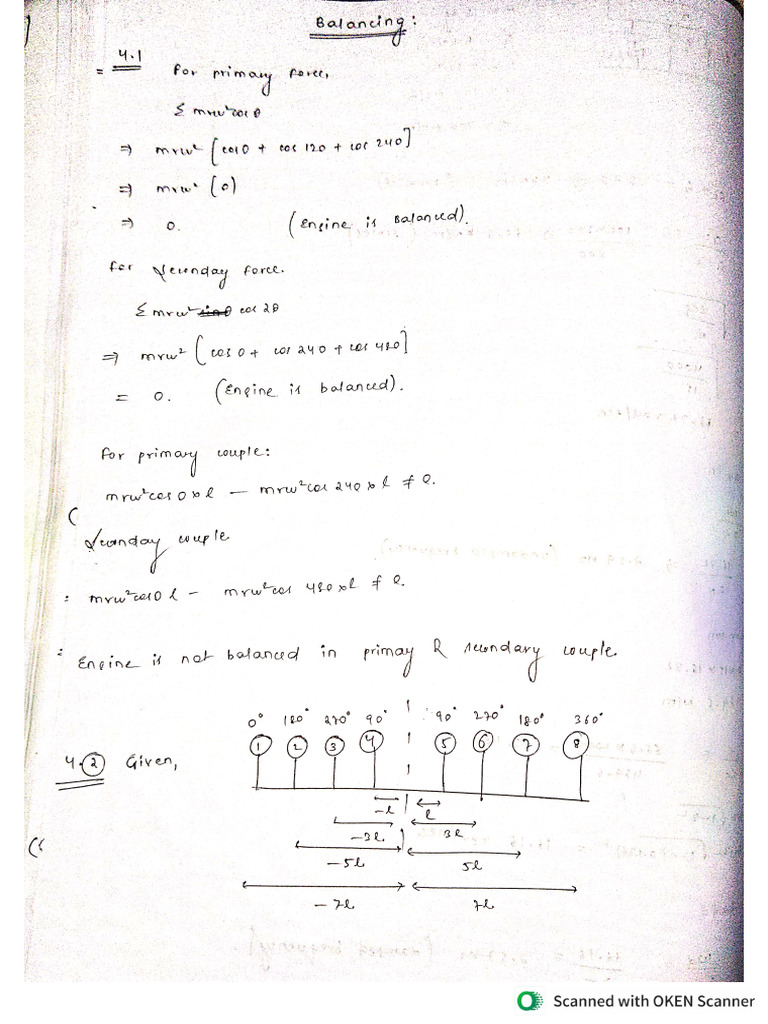 Balancing:
4.1
= For primary force,
Σ mrω²cosθ
⇒ mrω² [cos0 + cos 120 + cos 240]
⇒ mrω² (0)
⇒ 0. (Engine is Balanced).
for Secunday force.
Σ mrω² sinθ cos 2θ
⇒ mrω² [cos 0 + cos 240 + cos 480]
= 0. (Engine is balanced).
For primary couple:
mrω²cos 0 × l — mrω²cos 240 × l ≠ 0.
Secunday couple
: mrω²cos0 l — mrω²cos 480 × l ≠ 0.
: Engine is not balanced in primay & secondary couple.
0° 180° 270° 90° 90° 270° 180° 360°
1 2 3 4 5 6 7 8
4.2 Given,
-l l
-3l 3l
-5l 5l
-7l 7l
Scanned with OKEN Scanner